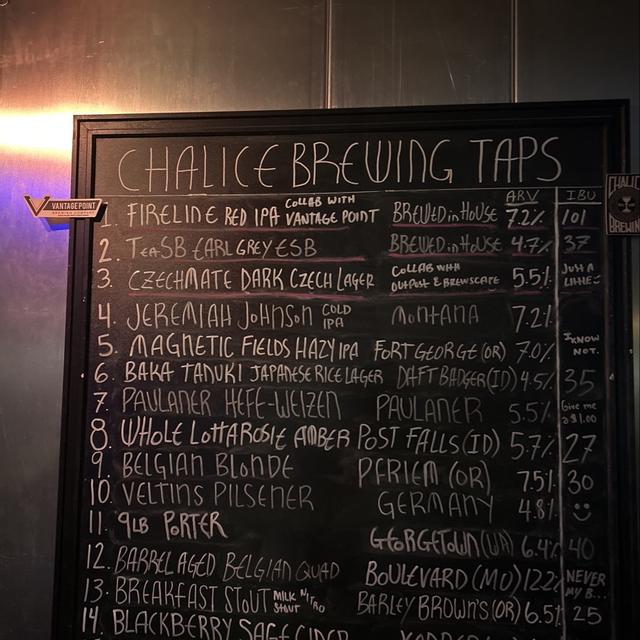 CHALICE BREWING TAPS
ABV IBU
1. FIRELINE RED IPA COLLAB WITH VANTAGE POINT BREWED in HOUSE 7.2% 101
2. TeaSB EARL GREY ESB BREWED in HOUSE 4.7% 37
3. CZECHMATE DARK CZECH LAGER COLLAB WITH OUTPOST & BREWSCAPE 5.5% JUST A LITTLE
4. JEREMIAH JOHNSON COLD IPA MONTANA 7.2%
5. MAGNETIC FIELDS HAZY IPA FORT GEORGE (OR) 7.0% I KNOW NOT.
6. BAKA TANUKI JAPANESE RICE LAGER DAFT BADGER (ID) 4.5% 35
7. PAULANER HEFE-WEIZEN PAULANER 5.5% Give me a $1.00
8. WHOLE LOTTA ROSIE AMBER POST FALLS (ID) 5.7% 27
9. BELGIAN BLONDE PFRIEM (OR) 7.5% 30
10. VELTINS PILSENER GERMANY 4.8%
11. 9LB PORTER GEORGETOWN (WA) 6.4% 40
12. BARREL AGED BELGIAN QUAD BOULEVARD (MO) 12.2% NEVER MY B...
13. BREAKFAST STOUT MILK NITRO STOUT BARLEY BROWN'S (OR) 6.5% 25
14. BLACKBERRY SAGE CIDER
VANTAGE POINT
BREWING COMPANY
CHALIC
BREWIN